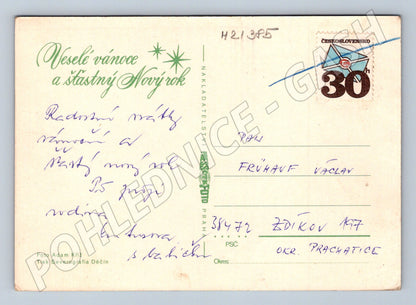 Veselé vánoce
a šťastný Nový rok
H21385
ČESKOSLOVENSKO
30h
Radostné svátky
vánoční a
šťastný nový rok
85 přeje
rodina
s babičkou
PAN
FRÜHAUF VÁCLAV
38472 ZDÍKOV 197
PSČ
OKR. PRACHATICE
Okres
NAKLADATELSTVÍ
PRAHA
Foto Adam
Tisk Severografia Děčín
POHLEDNICE - GASH